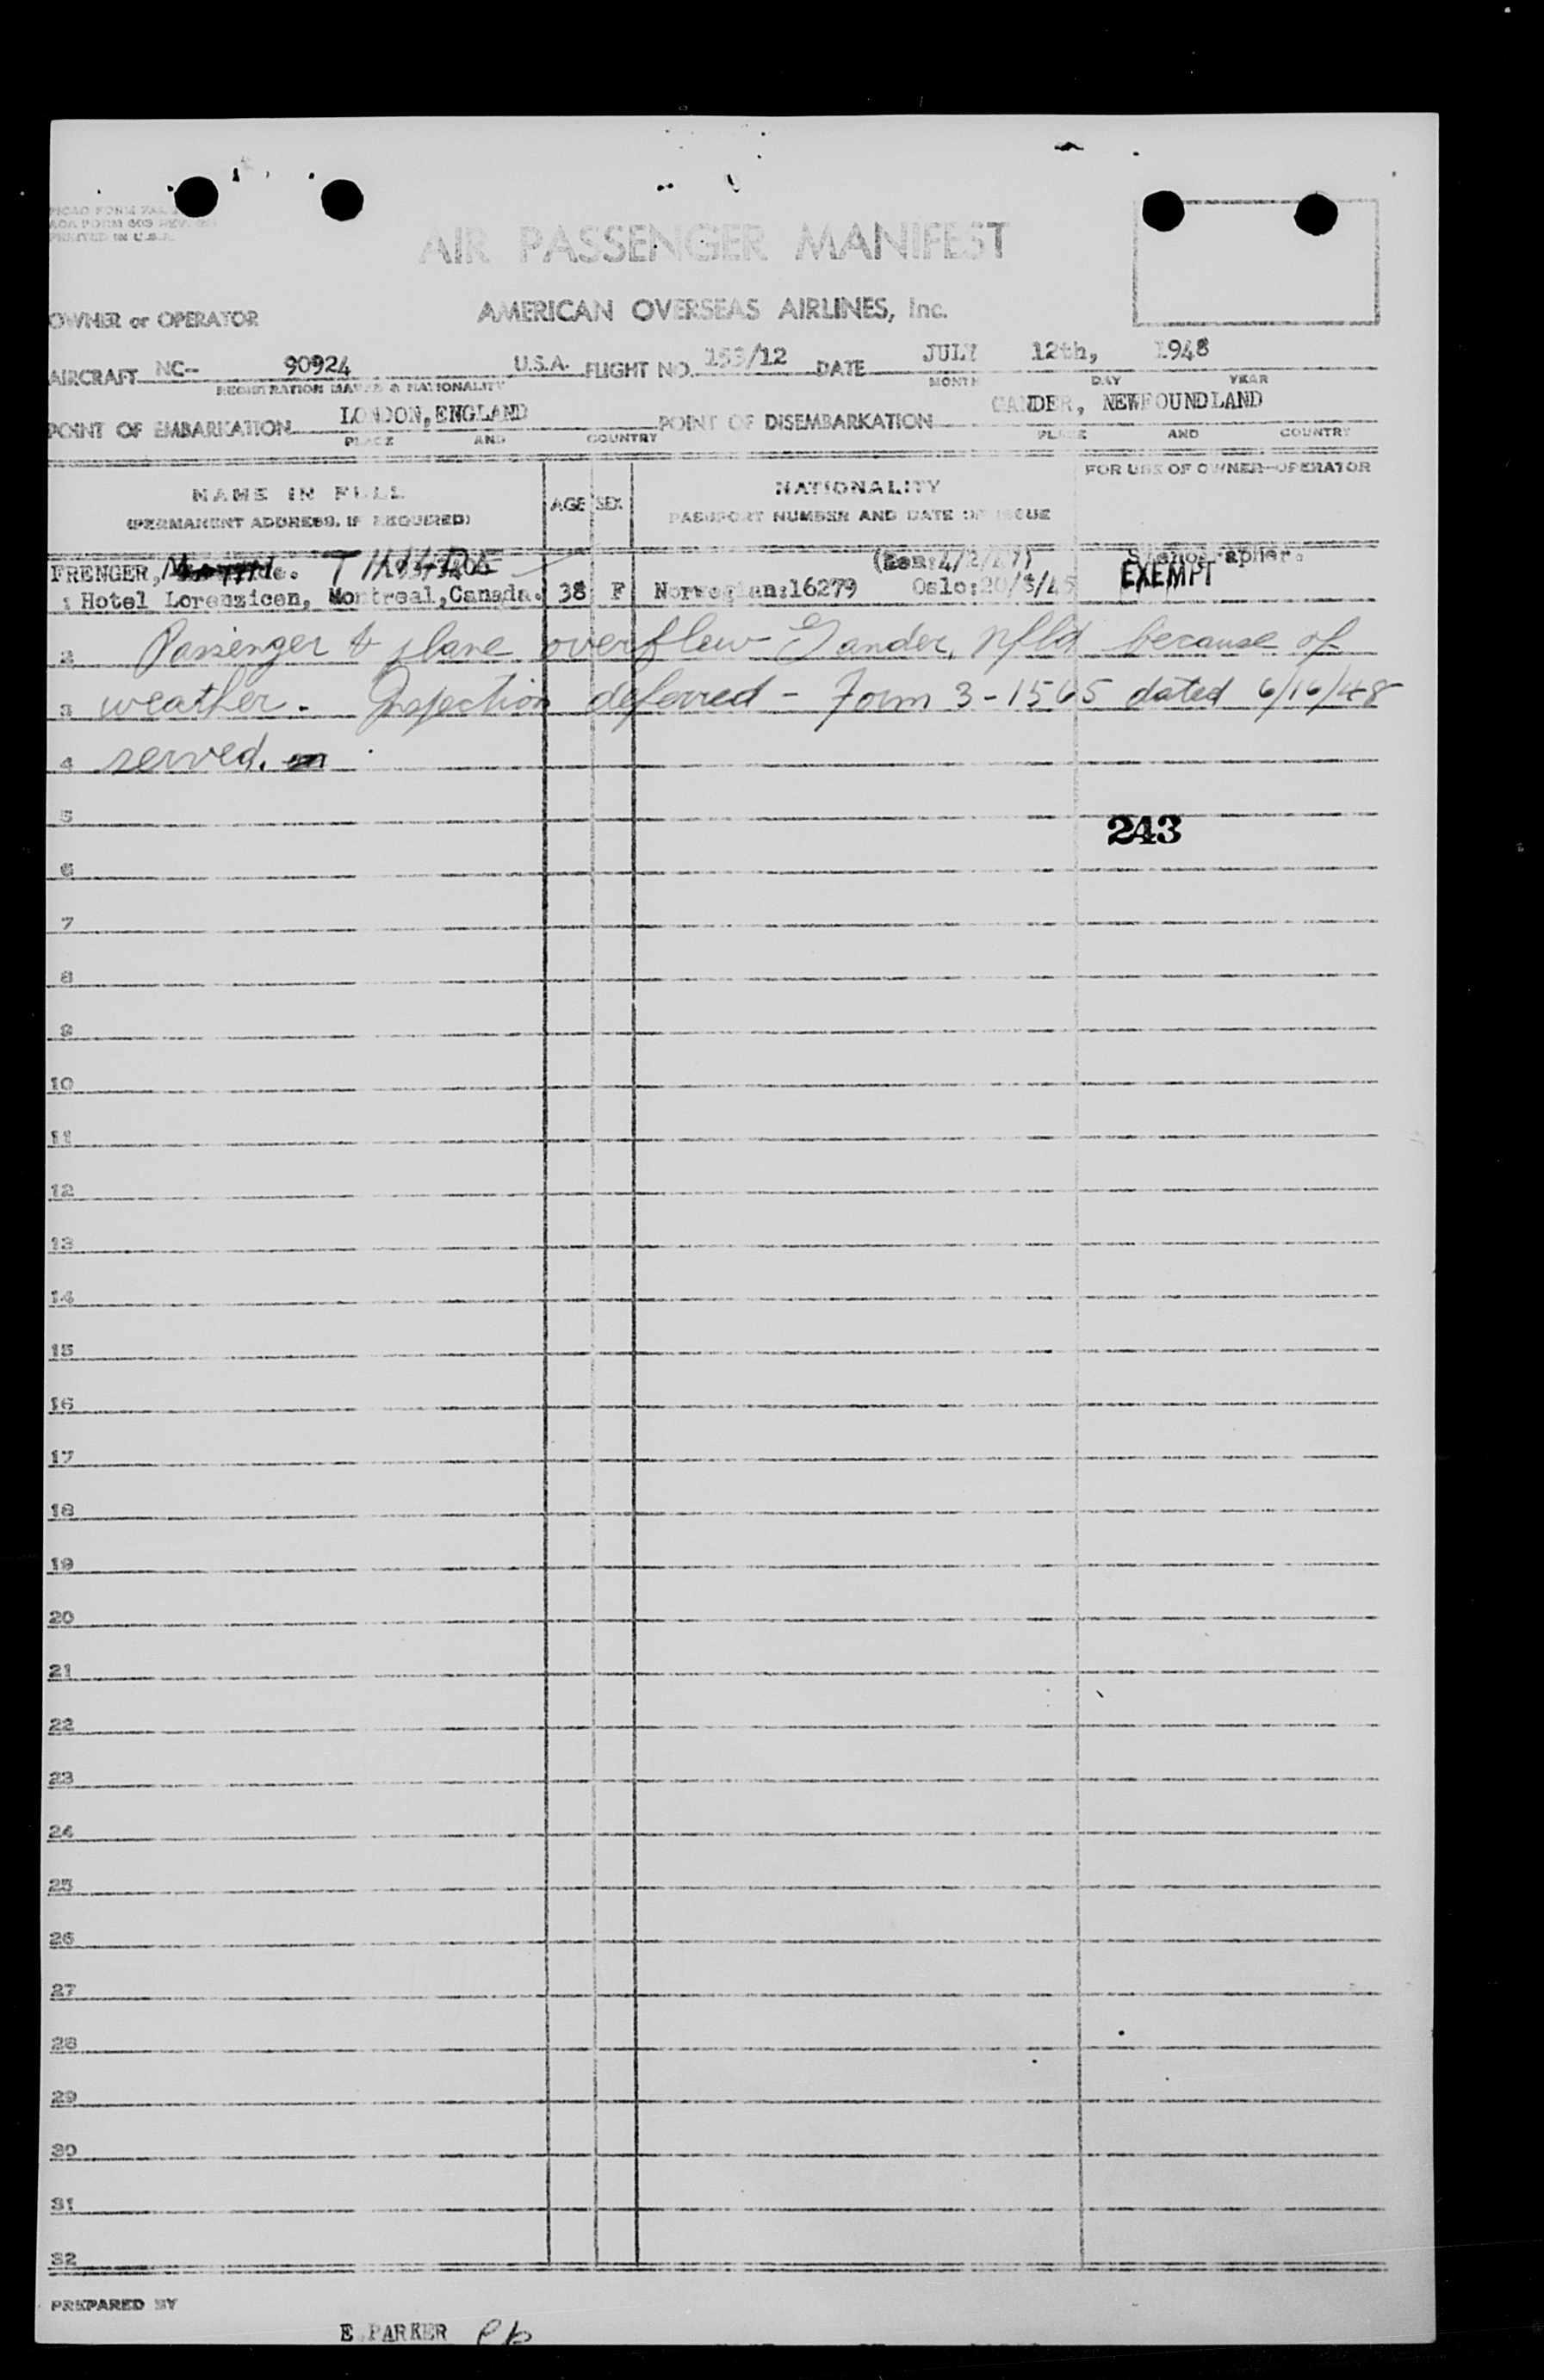 AIR PASSENGER MANIFEST
OWNER or OPERATOR AMERICAN OVERSEAS AIRLINES, Inc.
AIRCRAFT NC- 90924 U.S.A. FLIGHT NO. 153/12 DATE JULY 12th, 1948
REGISTRATION MARKS & NATIONALITY MONTH DAY YEAR
POINT OF EMBARKATION LONDON, ENGLAND POINT OF DISEMBARKATION GANDER, NEWFOUNDLAND
PLACE AND COUNTRY PLACE AND COUNTRY
FOR USE OF OWNER-OPERATOR
NAME IN FULL AGE SEX NATIONALITY
(PERMANENT ADDRESS, IF REQUIRED) PASSPORT NUMBER AND DATE OF ISSUE
FRENGER, Stenographer.
: Hotel Montreal, Canada. 38 F Norwegian:16279 Oslo: EXEMPT
2 Passenger & plane overflew Gander, Nfld because of
3 weather. Inspection deferred - Form 3-1565 dated 6/16/48
4 served.
5
243
6
7
8
9
10
11
12
13
14
15
16
17
18
19
20
21
22
23
24
25
26
27
28
29
30
31
32
PREPARED BY
E. PARKER